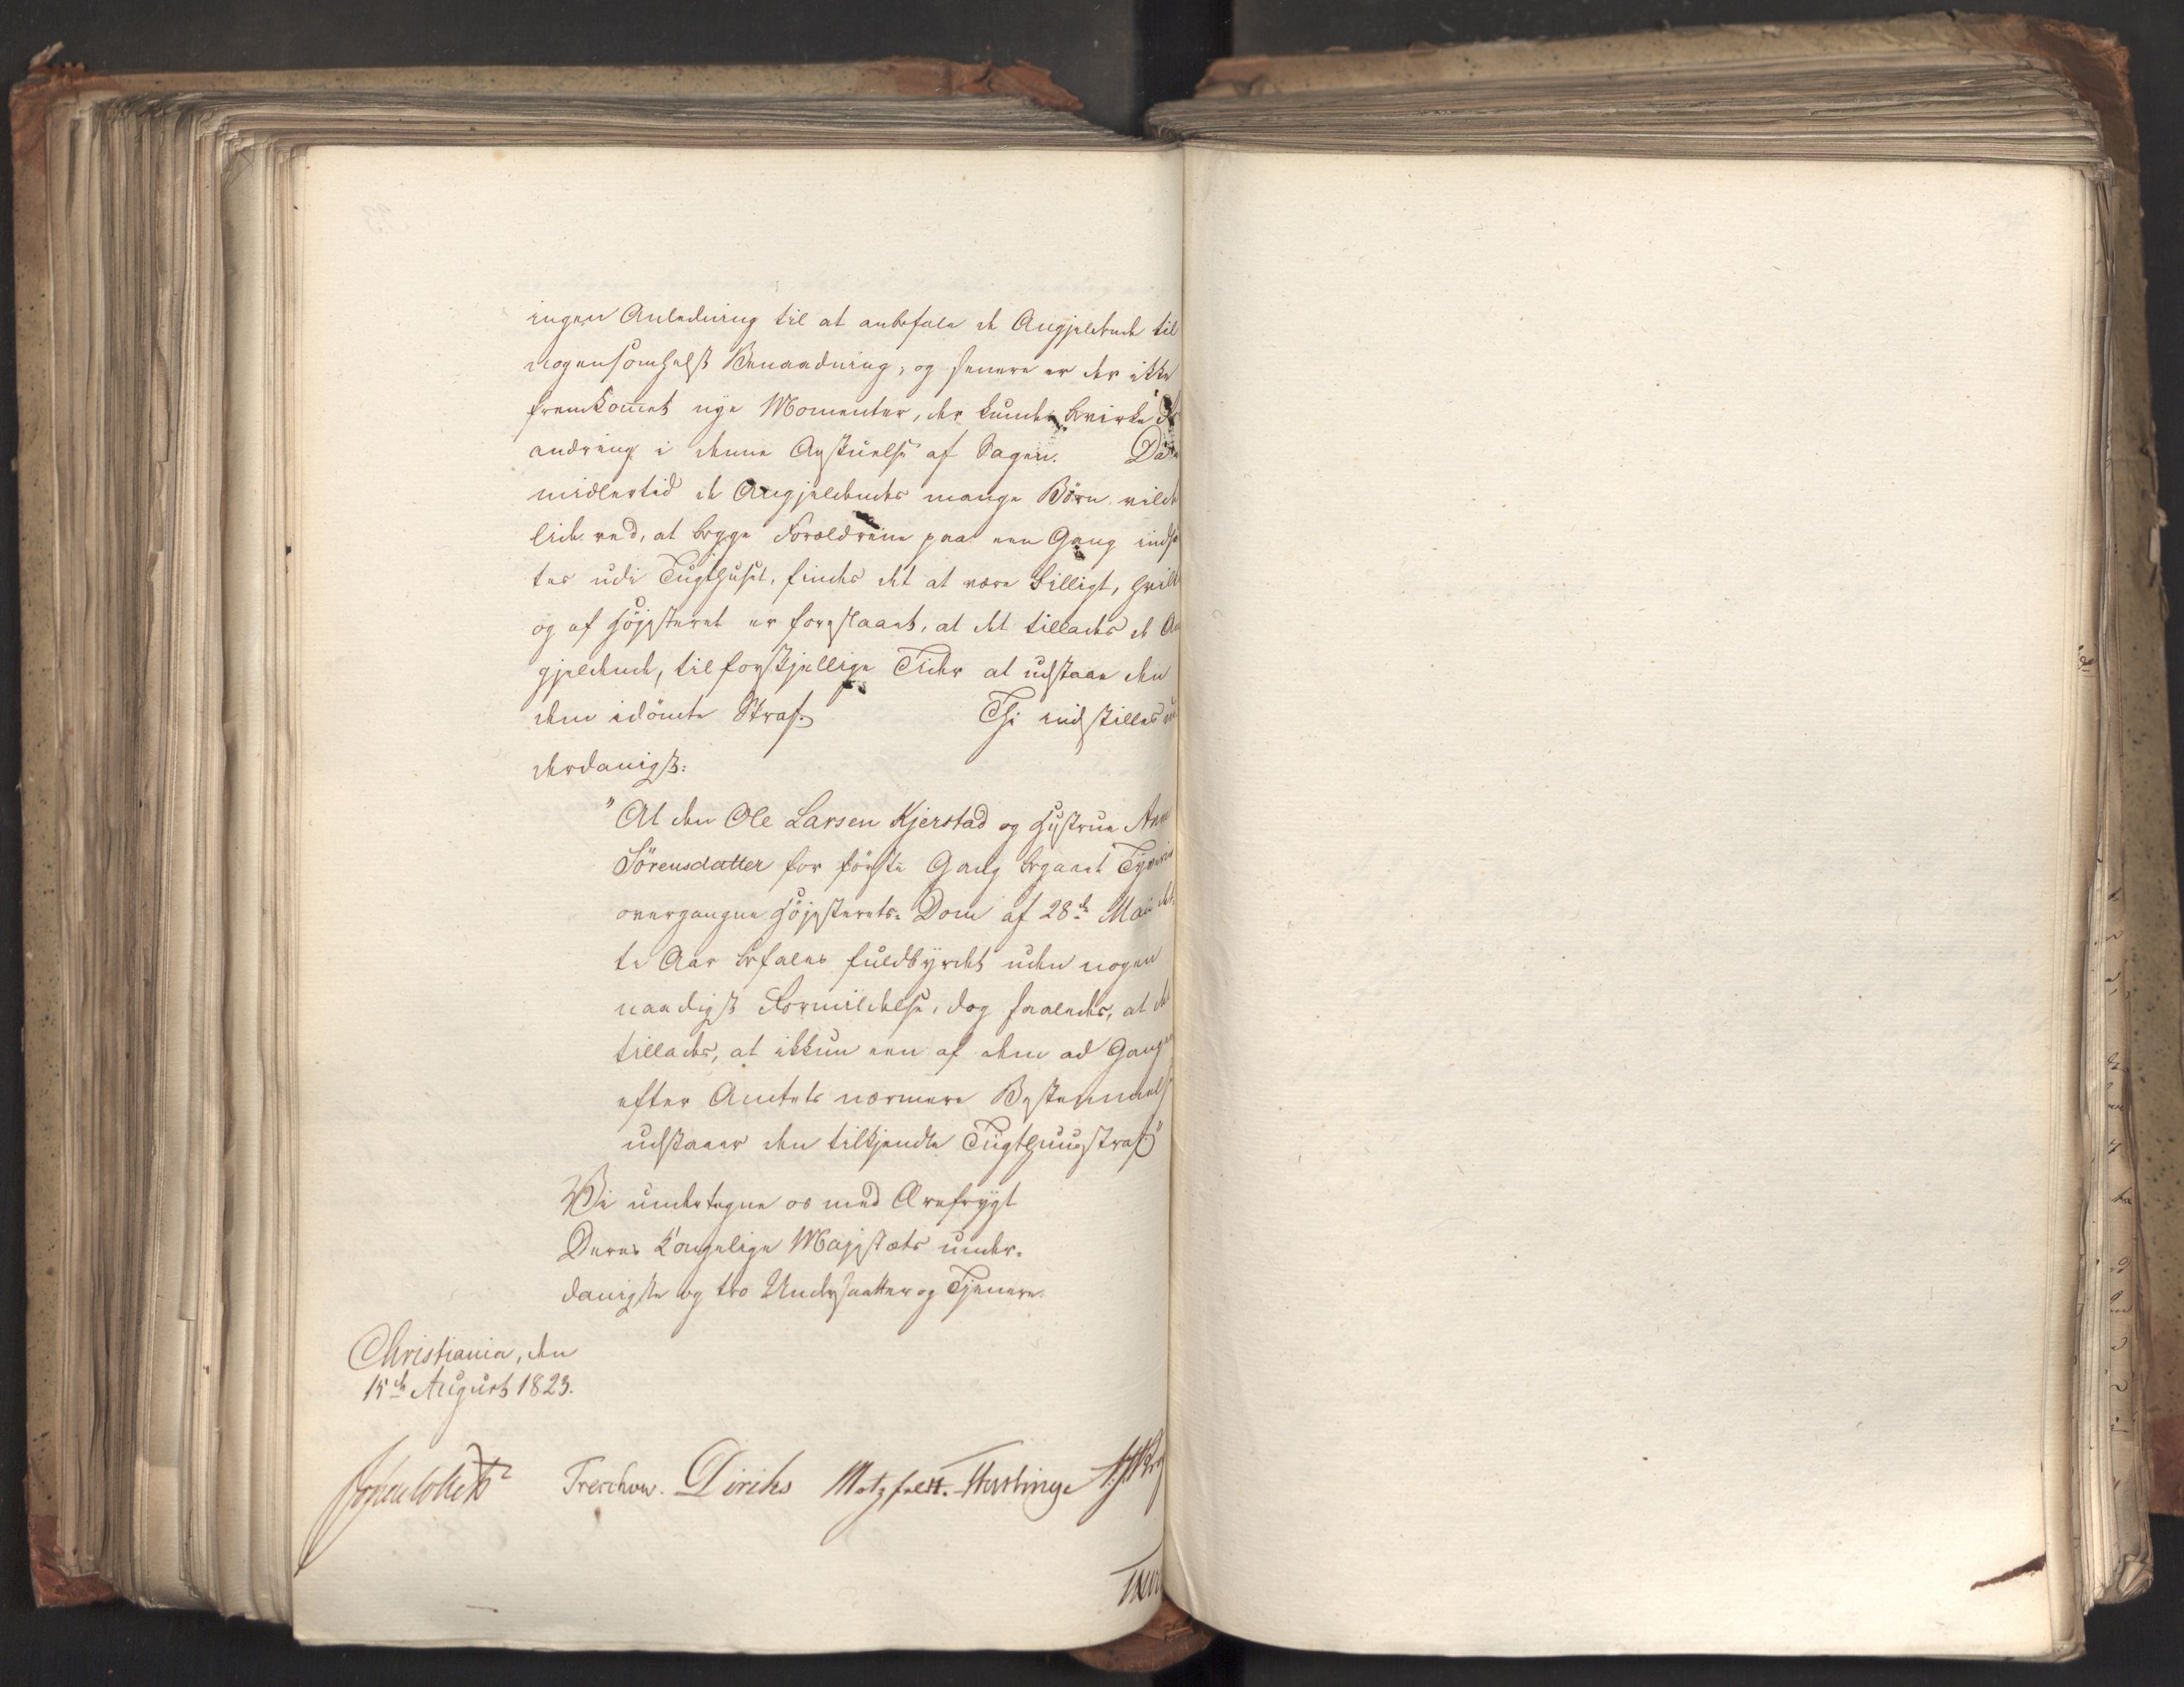 ingen Anledning til at anbefale de Angjeldende til
nogensomhelst Benaadning, og senere er der ikke
fremkommet nye Momenter, der kunde bevirke For
andring i denne Anskuelse af Sagen. Da
midlertid de Angjeldendes mange Börn vilde
lide ved, at begge Forældrene paa een Gang indsæ
tes udi Tugthuset, findes det at være billigt, hvilket
og af Höjesteret er foreslaaet, at det tillades de An
gjeldende, til forskjellige Tider at udstaae den
dem idömte Straf. Thi indstilles un
derdanigst:
"At den Ole Larsen Kjerstad og Hustrue Anne
Sörensdatter for förste Gang begaaet Tyverie
overgangne Höjesterets-Dom af 28de Mai det-
te Aar befales fuldbyrdet uden nogen
naadigst Formildelse, dog saaledes, at det
tillades, at ikkun een af dem ad Gangen
efter Amtets nærmere Bestemmelse
udstaaer den tilkjendte Tugthuusstraf"
Vi undertegne os med Ærefrygt
Deres Kongelige Majestæts under-
danigste og tro Undersaatter og Tjenere.
Christiania, den
15de August 1823.
JohnCollett Treschow. Diriks Motzfeldt. Hersleb